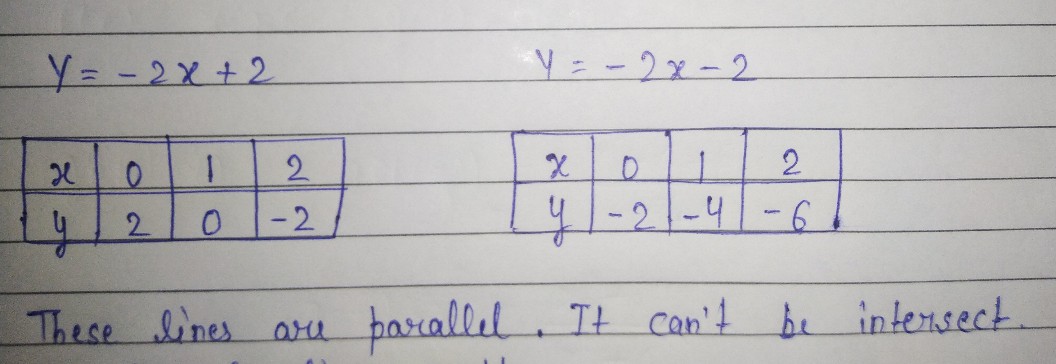 Y = -2x + 2 Y = -2x - 2
x 0 1 2 x 0 1 2
y 2 0 -2 y -2 -4 -6
These lines are parallel. It can't be intersect.